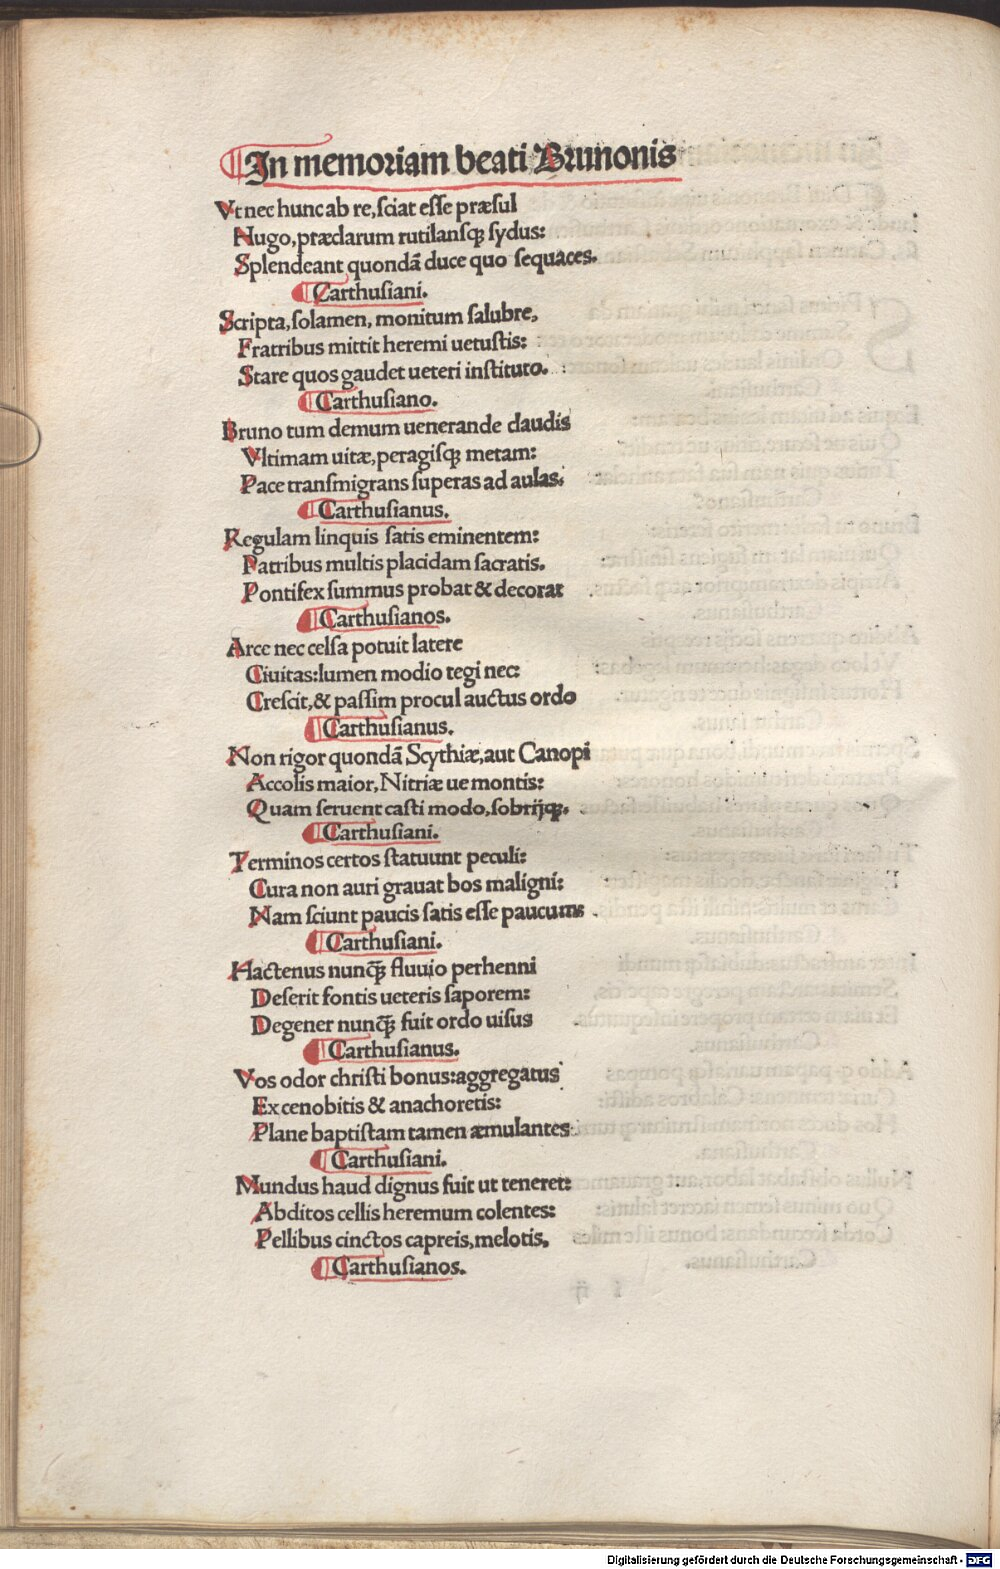 In memoriam beati Brunonis
Vt nec hunc ab re, sciat esse præsul
Hugo, præclarum rutilansqꝫ sydus:
Splendeant quondã duce quo sequaces.
Carthusiani.
Scripta, solamen, monitum salubre,
Fratribus mittit heremi uetustis:
Stare quos gaudet ueteri instituto.
Carthusiano.
Bruno tum demum uenerande claudis
Vltimam uitæ, peragisqꝫ metam:
Pace transmigrans superas ad aulas.
Carthusianus.
Regulam linquis satis eminentem:
Patribus multis placidam sacratis.
Pontifex summus probat & decorat
Carthusianos.
Arce nec celsa potuit latere
Ciuitas: lumen modio tegi nec:
Crescit, & passim procul auctus ordo
Carthusianus.
Non rigor quondã Scythiæ, aut Canopi
Accolis maior, Nitriæ ue montis:
Quam seruent casti modo, sobrijqꝫ.
Carthusiani.
Terminos certos statuunt peculi:
Cura non auri grauat hos maligni:
Nam sciunt paucis satis esse paucums
Carthusiani.
Hactenus nunqꝫ̃ fluuio perhenni
Deserit fontis ueteris saporem:
Degener nunqꝫ̃ fuit ordo uisus
Carthusianus.
Vos odor christi bonus: aggregatus
Ex cenobitis & anachoretis:
Plane baptistam tamen æmulantes
Carthusiani.
Mundus haud dignus fuit ut teneret:
Abditos cellis heremum colentes:
Pellibus cinctos capreis, melotis,
Carthusianos.
Digitalisierung gefördert durch die Deutsche Forschungsgemeinschaft - DFG